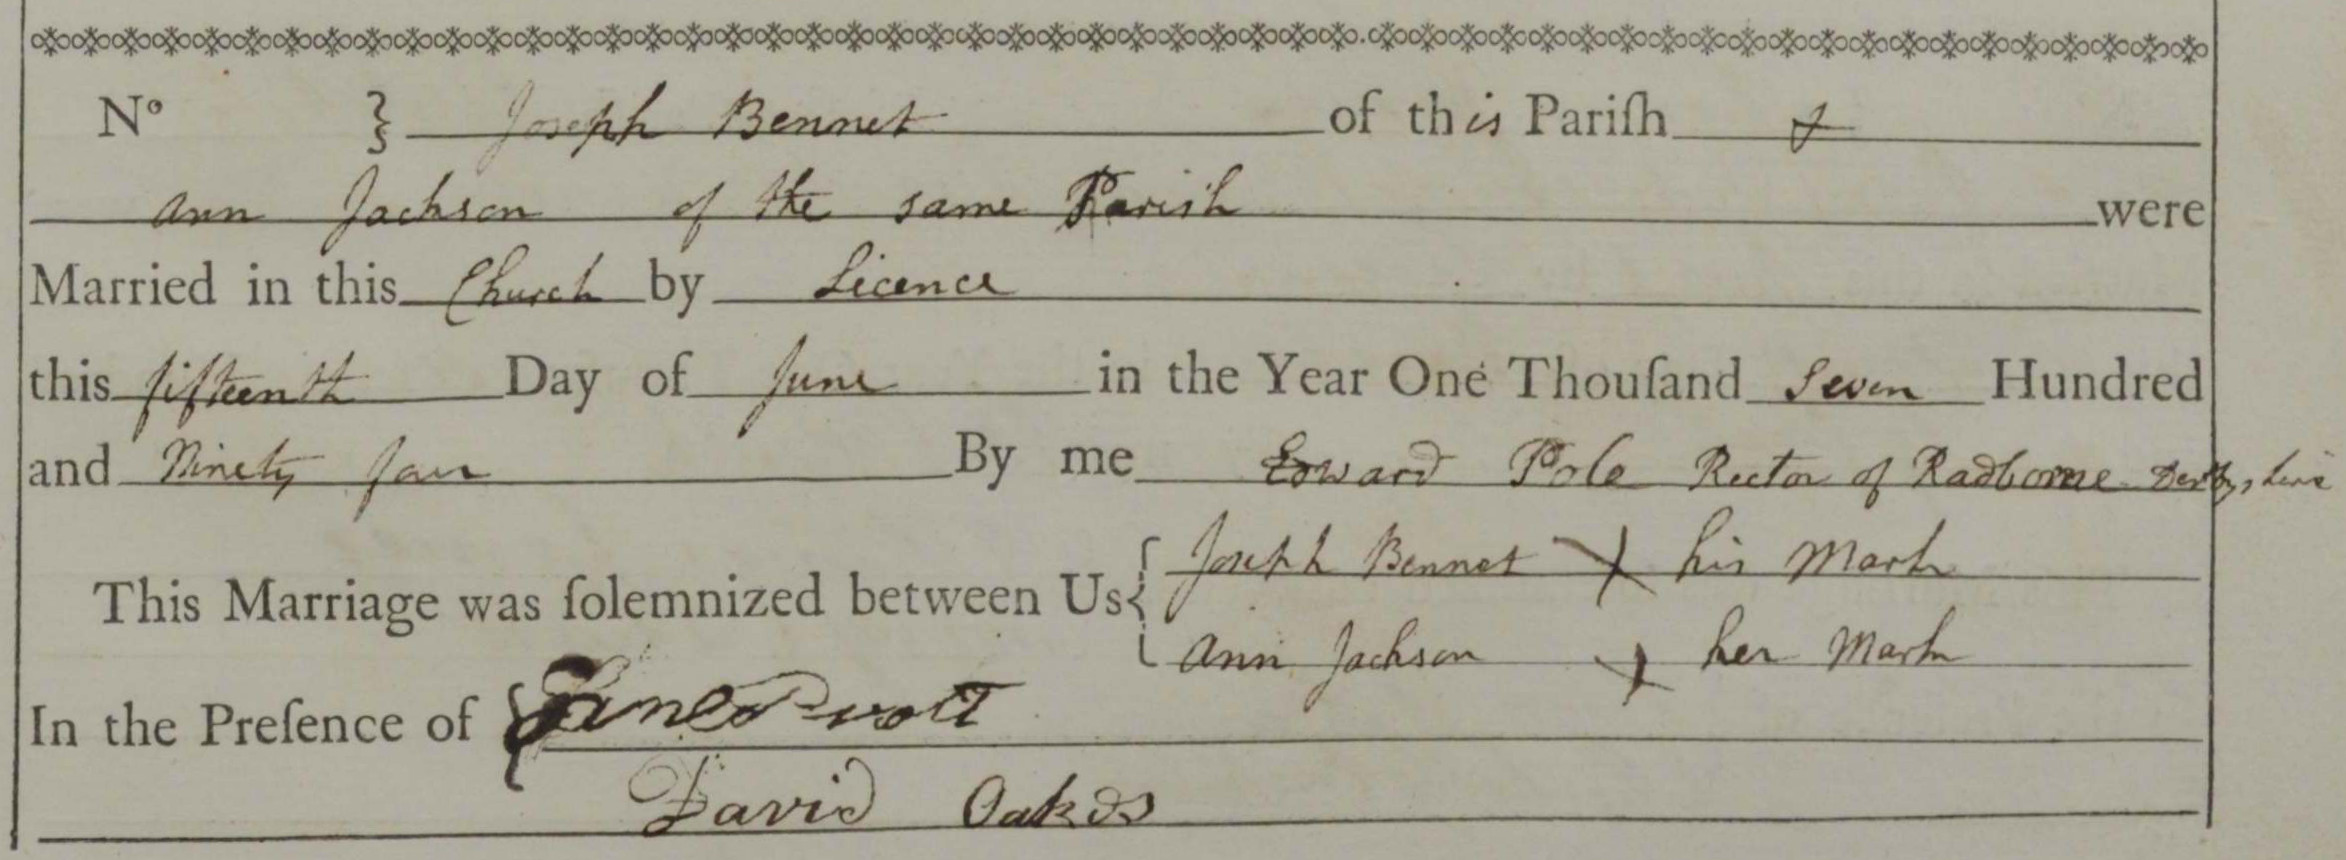 No } Joseph Bennet of this Pariſh &
Ann Jackson of the same Parish were
Married in this Church by Licence
this fifteenth Day of June in the Year One Thouſand Seven Hundred
and Ninety four By me Edward Pole Rector of Radborne Derbyshire
This Marriage was ſolemnized between Us { Joseph Bennet X his Mark
Ann Jackson X her Mark
In the Preſence of {
David Oakes